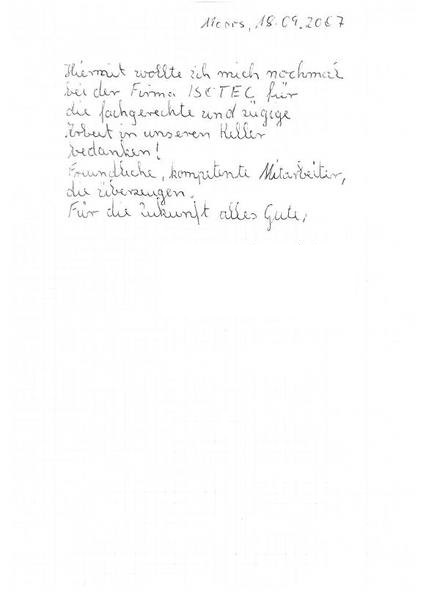 Moers, 18.09.2007
Hiermit wollte ich mich nochmal
bei der Firma ISOTEC für
die fachgerechte und zügige
Arbeit in unseren Keller
bedanken!
Freundliche, kompetente Mitarbeiter,
die überzeugen.
Für die Zukunft alles Gute,